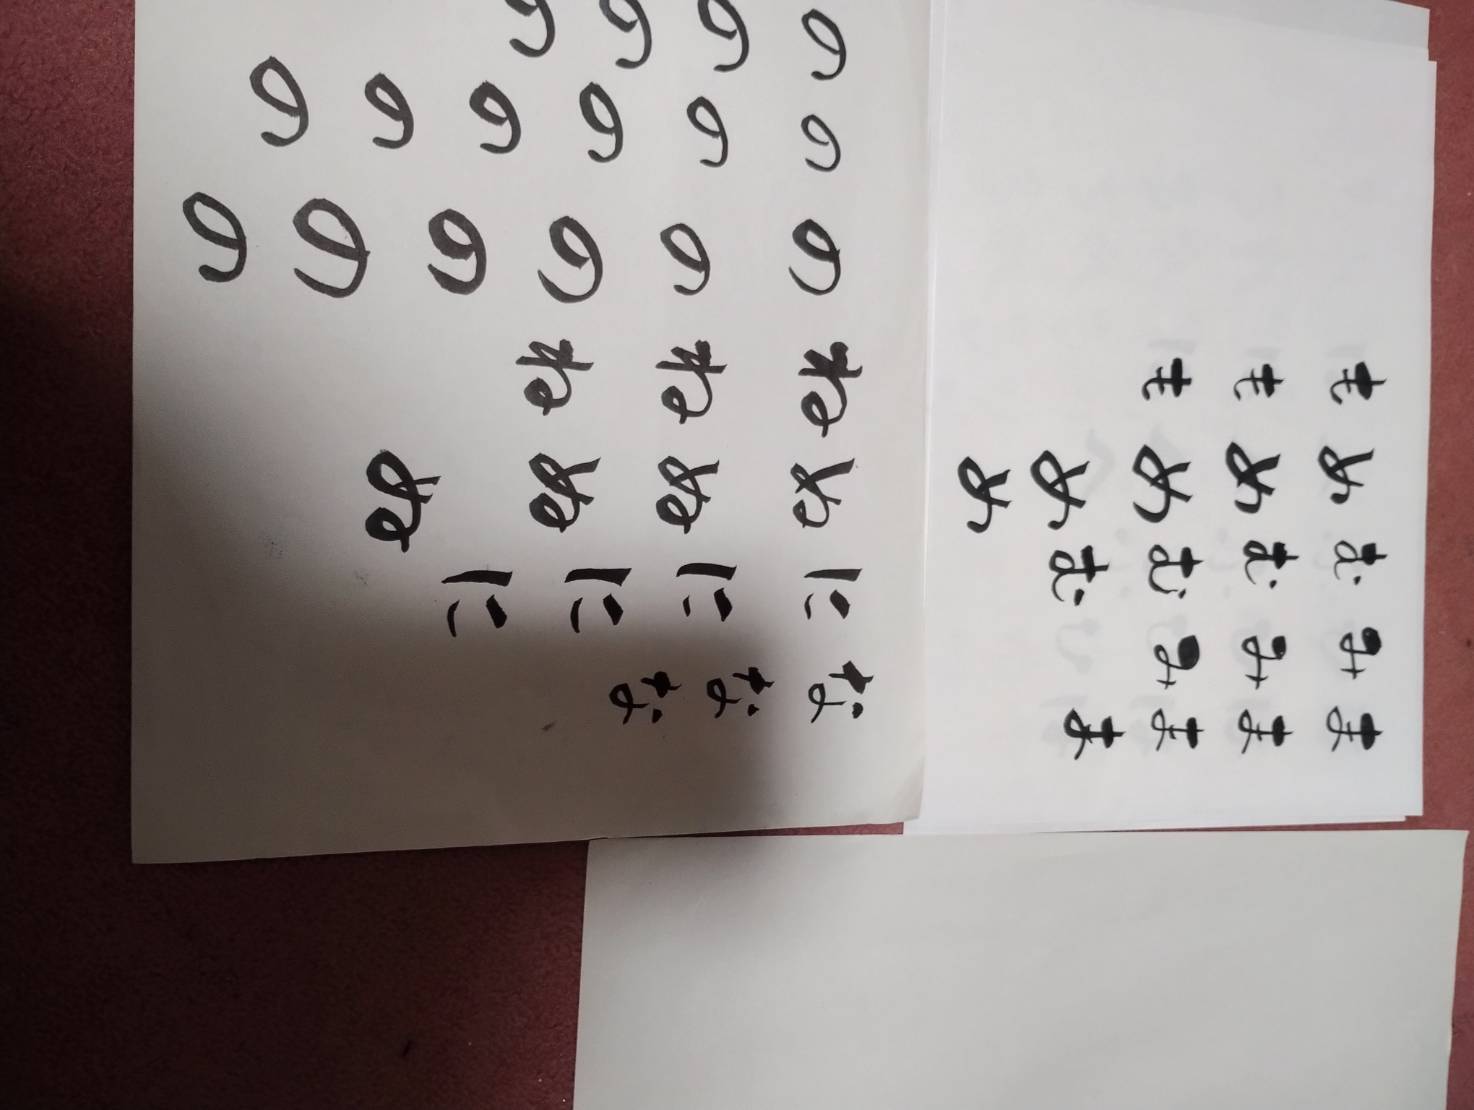 まままま
みみみ
むむむむ
めめめめめ
ももも
ななな
にににに
ぬぬぬぬ
ねねね
のののののの
のののののの
のののの